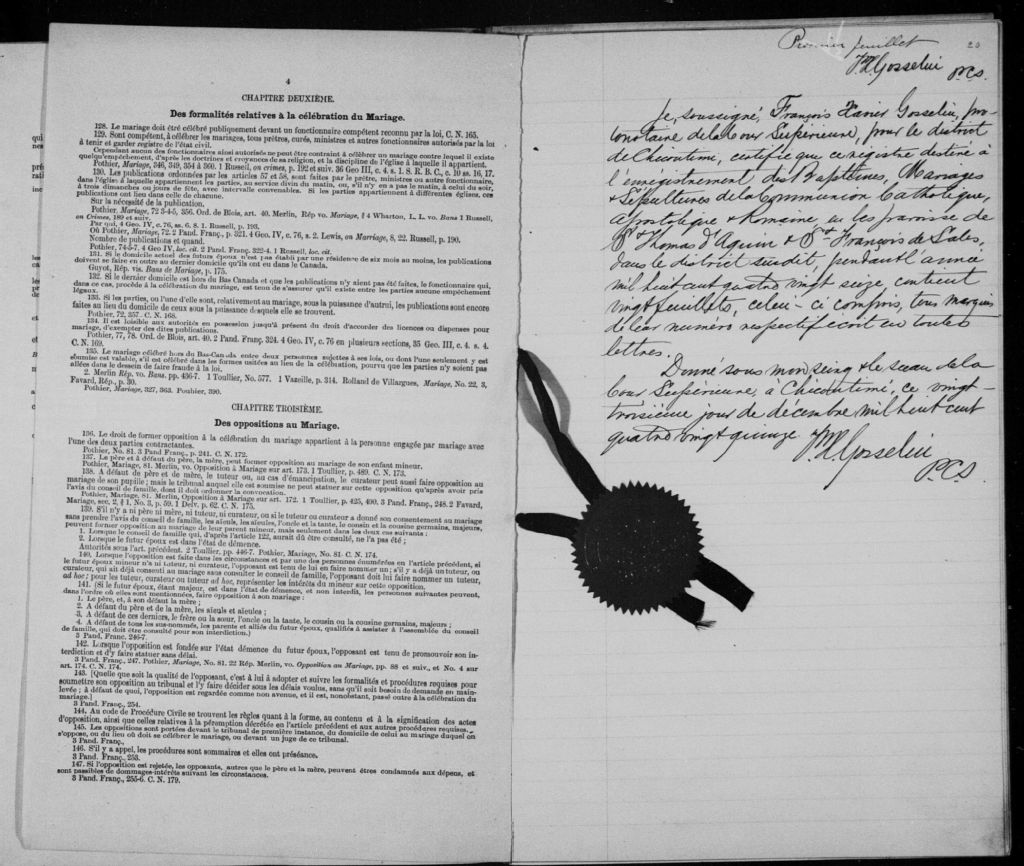 qui
nes
pré
rati
ine
les
ca
les
pr
de
et
B
n
4
CHAPITRE DEUXIÈME.
Des formalités relatives à la célébration du Mariage.
128. Le mariage doit être célébré publiquement devant un fonctionnaire compétent reconnu par la loi, C. N. 165.
129. Sont compétent, à célébrer les mariages, tous prêtres, curés, ministres et autres fonctionnaires autorisés par la loi
à tenir et garder registre de l'état civil.
Cependant aucun des fonctionnaires ainsi autorisés ne peut être contraint à célébrer un mariage contre lequel il existe
quelqu'empêchement, d'après les doctrines et croyances de sa religion, et la discipline de l'Église à laquelle il appartient.
Pothier, Mariage, 346, 349, 354 à 360. 1 Russell, on crimes, p. 192 et suiv. 36 Geo III, c. 4, s. 1. S. R. B. C., c. 10 ss. 16, 17.
130. Les publications ordonnées par les articles 57 et 58, sont faites par le prêtre, ministres ou autre fonctionnaire,
dans l'église à laquelle appartiennent les parties, au service divin du matin, ou, s'il n'y en a pas le matin, à celui du soir,
à trois dimanches ou jours de fête, avec intervalle convenables. Si les parties appartiennent à différentes églises, ces
publications ont lieu dans celle de chacune.
Sur la nécessité de la publication.
Pothier, Mariage, 72 3-4-5, 356. Ord. de Blois, art. 40. Merlin, Rép vo. Mariage, § 4 Wharton, L. L. vo. Bans 1 Russell,
on Crimes, 189 et suiv.
Par qui, 4 Geo. IV, c. 76, ss. 6, 8. 1. Russell, p. 193.
Où Pothier, Mariage, 72. 2 Pand. Franç., p. 321. 4 Geo. IV, c. 76, s. 2. Lewis, on Marriage, 8, 22. Russell, p. 190.
Nombre de publications et quand.
Pothier, 74-5-7. 4 Geo IV, loc. cit. 2 Pand. Franç. 322-4. 1 Russell, loc. cit.
131. Si le domicile actuel des futurs époux n'est pas établi par une résidence de six mois au moins, les publications
doivent se faire en outre au dernier domicile qu'ils ont eu dans le Canada.
Guyot, Rép. vis. Bans de Mariage, p. 175.
132. Si le dernier domicile est hors du Bas Canada et que les publications n'y aient pas été faites, le fonctionnaire qui,
dans ce cas, procède à la célébration du mariage, est tenu de s'assurer qu'il existe entre les parties aucune empêchement
légaux.
133. Si les parties, ou l'une d'elle sont, relativement au mariage, sous la puissance d'autrui, les publications sont encore
faites au lieu du domicile de ceux sous la puissance desquels elle se trouvent.
Pothier, 72, 357. C. N. 168.
134. Il est loisible aux autorités en possession jusqu'à présent du droit d'accorder des licences ou dispenses pour
mariage, d'exempter des dites publications.
Pothier, 77, 78. Ord. de Blois, art. 40. 2 Pand. Franç. 324. 4 Geo. IV, c. 76 en plusieurs sections, 35 Geo. III, c. 4. s. 4.
C. N. 169.
135. Le mariage célébré hors du Bas-Canada entre deux personnes sujettes à ses lois, ou dont l'une seulement y est
soumise est valable, s'il est célébré dans les formes usitées au lieu de la célébration, pourvu que les parties n'y soient pas
allées dans le dessein de faire fraude à la loi.
2. Merlin Rép. vo. Bans. pp. 466-7. 1 Toullier, No. 577. 1 Vazeille, p. 314. Rolland de Villargues, Mariage, No. 22, 3,
Favard, Rép., p. 30.
Pothier, Mariage, 327, 363. Pouhier, 390.
CHAPITRE TROISIÈME.
Des oppositions au Mariage.
136. Le droit de former opposition à la célébration du mariage appartient à la personne engagée par mariage avec
l'une des deux parties contractantes.
Pothier, No. 81. 3 Pand Franç., p. 241. C. N. 172.
137. Le père et à défaut du père, la mère, peut former opposition au mariage de son enfant mineur.
Pothier, Mariage, 81. Merlin, vo. Opposition à Mariage sur art. 173. 1 Toullier, p. 489. C. N. 173.
138. A défaut de père et de mère, le tuteur ou, au cas d'émancipation, le curateur peut aussi faire opposition au
mariage de son pupille ; mais le tribunal auquel elle est soumise ne peut statuer sur cette opposition qu'après avoir pris
l'avis du conseil de famille, dont il doit ordonner la convocation.
Pothier, Mariage, 81. Merlin, Opposition à Mariage sur art. 172. 1 Toullier, p. 425, 490. 3 Pand. Franç., 248. 2 Favard,
Mariage, sec. 2, § 1, No. 3, p. 59. 1 Delv. p. 62. C. N. 175.
139. S'il n'y a ni père ni mère, ni tuteur, ni curateur, ou si le tuteur ou curateur a donné son consentement au mariage
sans prendre l'avis du conseil de famille, les aïeuls, les aïeules, l'oncle et la tante, le cousin et la cousine germains, majeurs,
peuvent former opposition au mariage de leur parent mineur, mais seulement dans les deux cas suivants :
1. Lorsque le conseil de famille qui, d'après l'article 122, aurait dû être consulté, ne l'a pas été ;
2. Lorsque le futur époux est dans l'état de démence.
Autorités sous l'art. précédent. 2 Toullier, pp. 446-7. Pothier, Mariage, No. 81. C. N. 174.
140. Lorsque l'opposition est faite dans les circonstances et par une des personnes énumérées en l'article précédent, si
le futur époux mineur n'a ni tuteur, ni curateur, l'opposant est tenu de lui en faire nommer un ; s'il y a déjà un tuteur, ou
curateur, qui ait déjà consenti au mariage sans consulter le conseil de famille, l'opposant doit lui faire nommer un tuteur,
ad hoc ; pour les tuteur, curateur ou tuteur ad hoc, représenter les intérêts du mineur sur cette opposition.
141. [Si le futur époux, étant majeur, est dans l'état de démence, et non interdit, les personnes suivantes peuvent,
dans l'ordre où elles sont mentionnées, faire opposition à son mariage :
1. Le père, et, à son défaut la mère ;
2. A défaut du père et de la mère, les aïeuls et aïeules ;
3. A défaut de ces derniers, le frère ou la sœur, l'oncle ou la tante, le cousin ou la cousine germains, majeurs ;
4. A défaut de tous les sus-nommés, les parents et alliés du futur époux, qualifiés à assister à l'assemblée du conseil
de famille, qui doit être consulté pour son interdiction.)
3 Pand. Franç. 246-7.
142. Lorsque l'opposition est fondée sur l'état démence du futur époux, l'opposant est tenu de promouvoir son in-
terdiction et d'y faire statuer sans délai.
3 Pand. Franç., 247. Pothier, Mariage, No. 81. 22 Rép. Merlin, vo. Opposition au Mariage, pp. 88 et suiv., et No. 4 sur
art. 174. C. N. 174.
143. [Quelle que soit la qualité de l'opposant, c'est à lui à adopter et suivre les formalités et procédures requises pour
soumettre son opposition au tribunal et l'y faire décider sous les délais voulus, sans qu'il soit besoin de demande en main-
levée ; à défaut de quoi, l'opposition est regardée comme non avenue, et il est, nonobstant, passé outre à la célébration du
mariage.]
3 Pand. Franç., 254.
144. Au code de Procédure Civile se trouvent les règles quant à la forme, au contenu et à la signification des actes
d'opposition, ainsi que celles relatives à la péremption décrétée en l'article précédent et aux autres procédures requises.
145. Les oppositions sont portées devant le tribunal de première instance, du domicile de celui au mariage duquel on
s'oppose, ou du lieu où doit se célébrer le mariage, ou devant un juge de ce tribunal.
3 Pand. Franç.,
146. S'il y a appel, les procédures sont sommaires et elles ont préséance.
3 Pand. Franç., 253.
147. Si l'opposition est rejetée, les opposants, autres que le père et la mère, peuvent êtres condamnés aux dépens, et
sont passibles de dommages-intérêts suivant les circonstances.
3 Pand. Franç., 255-6. C. N. 179.
20
Premier feuillet
FX Gosselin
P.C.S.
Je, soussigné, François Xavier Gosselin, pro-
tonotaire de la Cour Supérieure, pour le district
de Chicoutimi, certifie que ce régistre destiné à
l'enrégistrement des Baptêmes, Mariages
& Sépultures de la Communion Catholique,
Apostolique & Romaine en les paroisse de
St Thomas d'Aquin & St François de Sales,
dans le district susdit, pendant l'année
mil huit cent quatre vingt seize, contient
vingt feuillets, celui-ci compris, tous marqués
de leur numéro respectif écrit en toutes
lettres.
Donné sous mon seing & le sceau de la
Cour Supérieure, à Chicoutimi, ce vingt-
troisième jour de décembre mil huit cent
quatre vingt quinze
FX Gosselin
P.C.S.